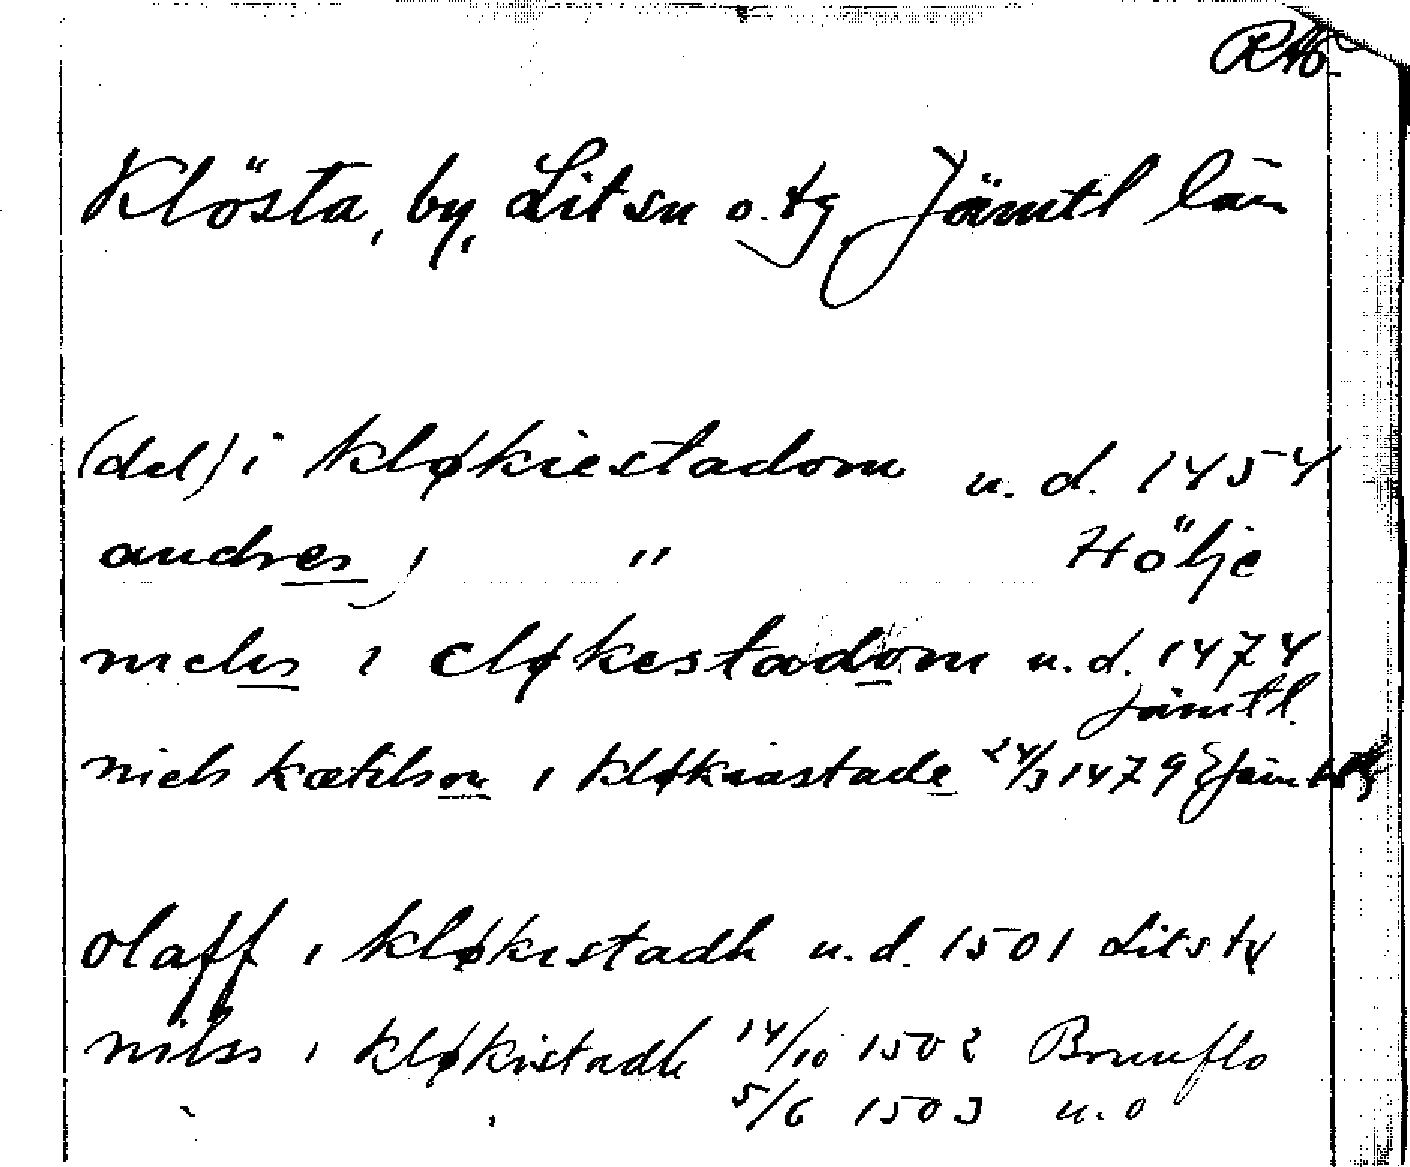 Klösta, by, Lit sn o. tg Jämtl län
(del) i kløkiestadom u. d. 1454
andres i " Hölje
niels i cløkestadom u. d. 1474
Jämtl.
niels kætilson i kløkiastade 24/3 1479
olaff i kløkistadh u. d. 1501 Lits tg
nilss i kløkistadh 14/10 1502 Brunflo
5/6 1503 u. o